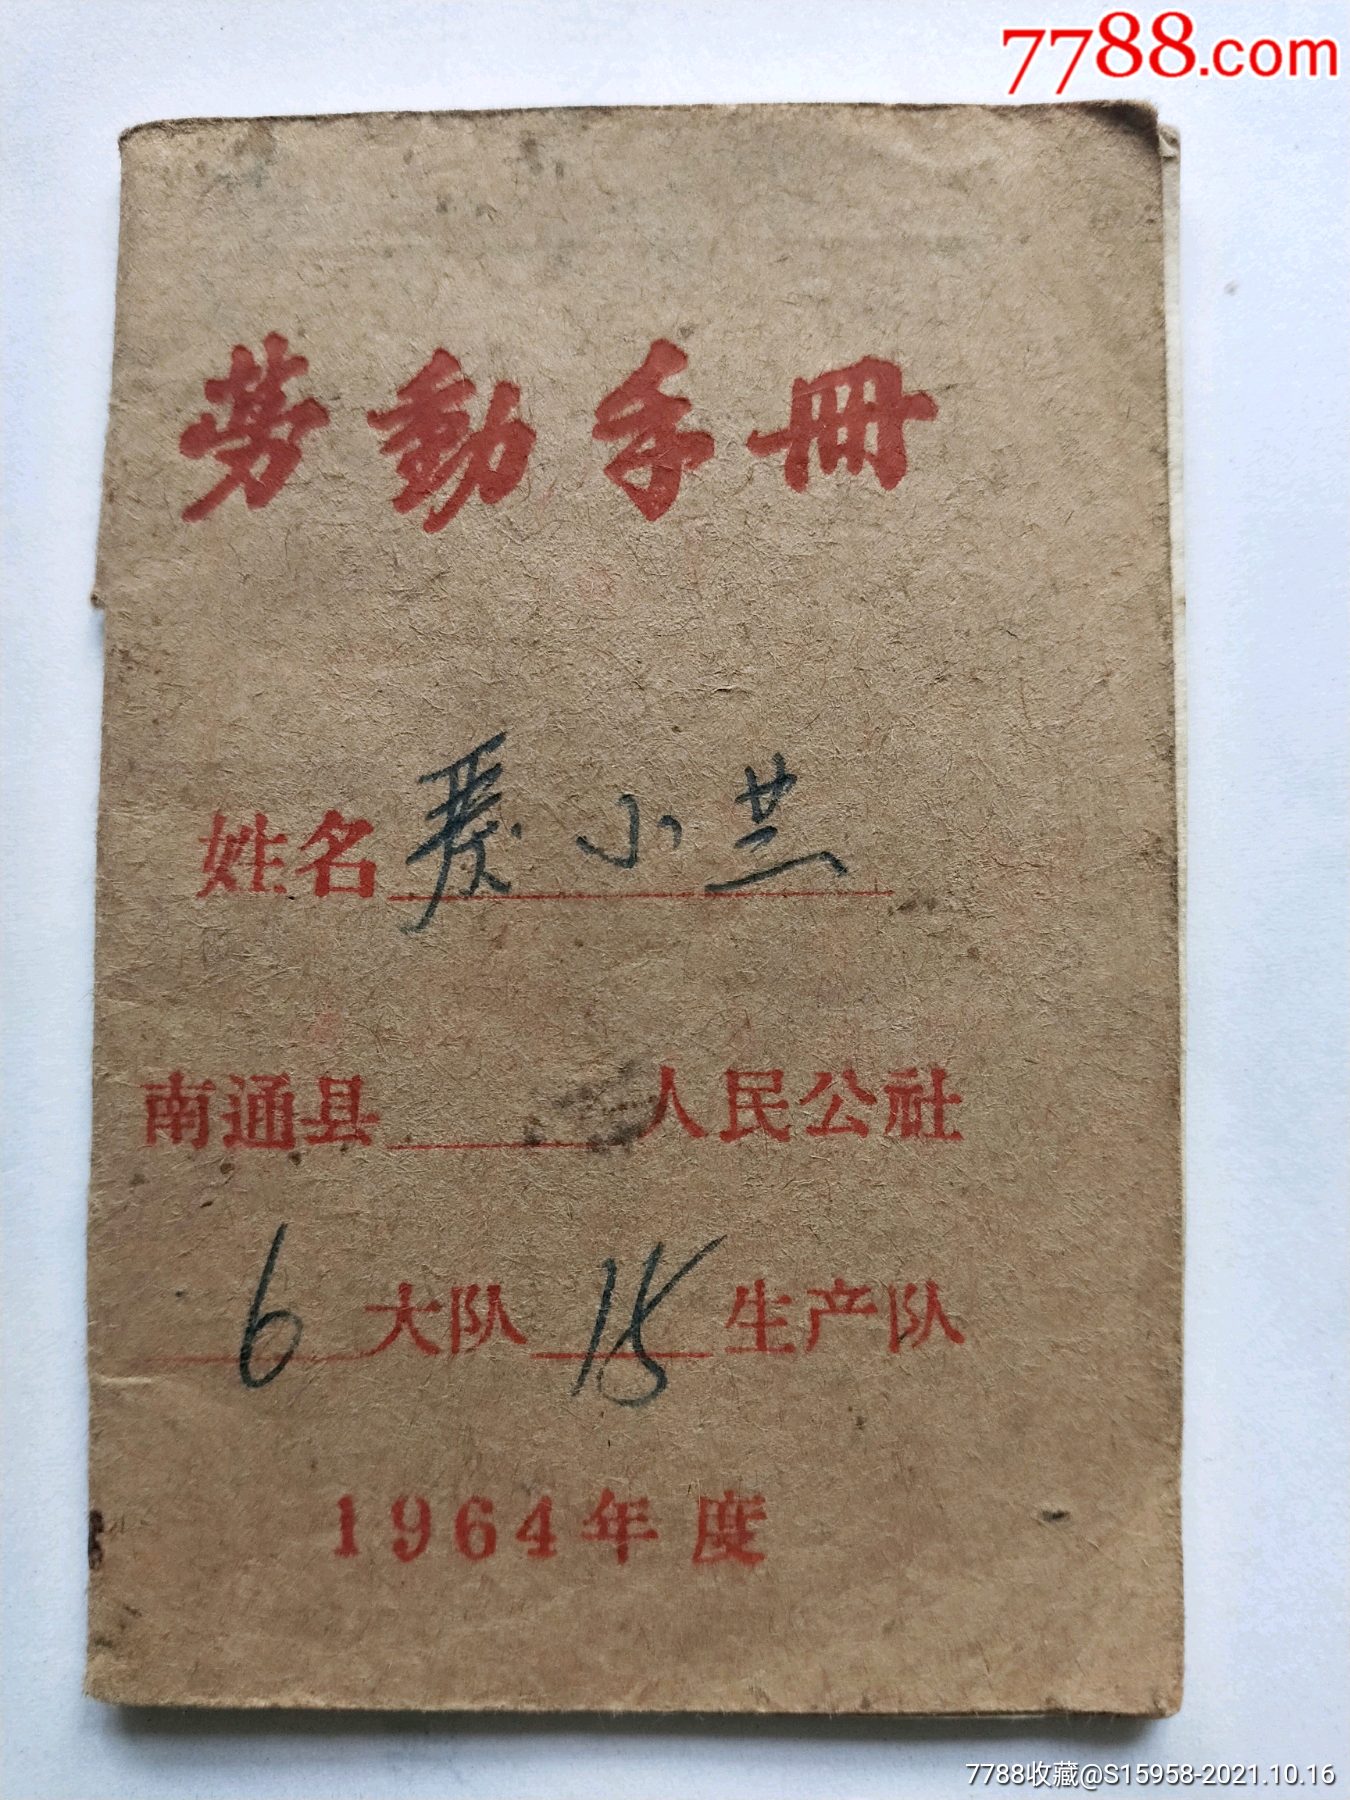 7788.com
劳動手冊
姓名 小兰
南通县 人民公社
6 大队 15 生产队
1964年度
7788收藏@S15958-2021.10.16